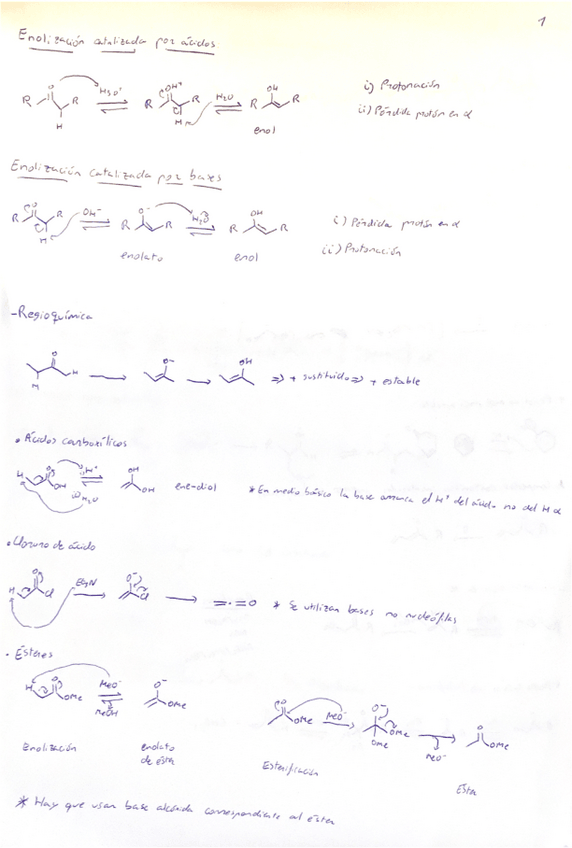 1
Enolización catalizada por ácidos
O H3O+ OH+ H2O OH
R R R R R R
H H H enol
i) Protonación
ii) Pérdida protón en α
Enolización catalizada por bases
O OH- O- H2O OH
R R R R R R
H
enolato enol
i) Pérdida protón en α
ii) Protonación
-Regioquímica
O O- OH
H H ⇒ + sustituido ⇒ + estable
• Ácidos carboxílicos
H O OH i) H+ OH OH ene-diol * En medio básico la base arranca el H+ del ácido no del H α
ii) H2O
• Cloruro de ácido
H O Cl Et3N O- Cl = · = O * Se utilizan bases no nucleófilas
• Ésteres
H O OMe MeO- MeOH O- OMe
O OMe MeO- O- OMe OMe MeO- O OMe
Enolización enolato
de éster
Esterificación Éster
* Hay que usar base alcóxida correspondiente al éster